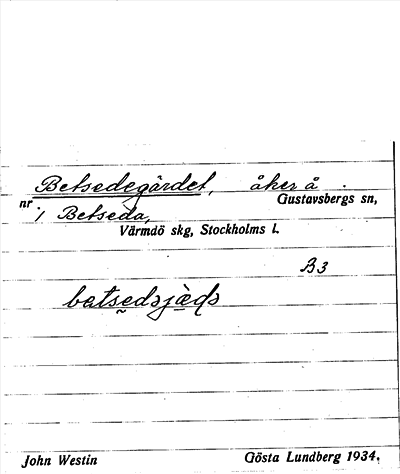 Betsedegärdet, åker å
nr 1 Betseda, Gustavsbergs sn,
Värmdö skg, Stockholms l.
B3
bɑtse̮dəjæ̀ḍə
John Westin Gösta Lundberg 1934.